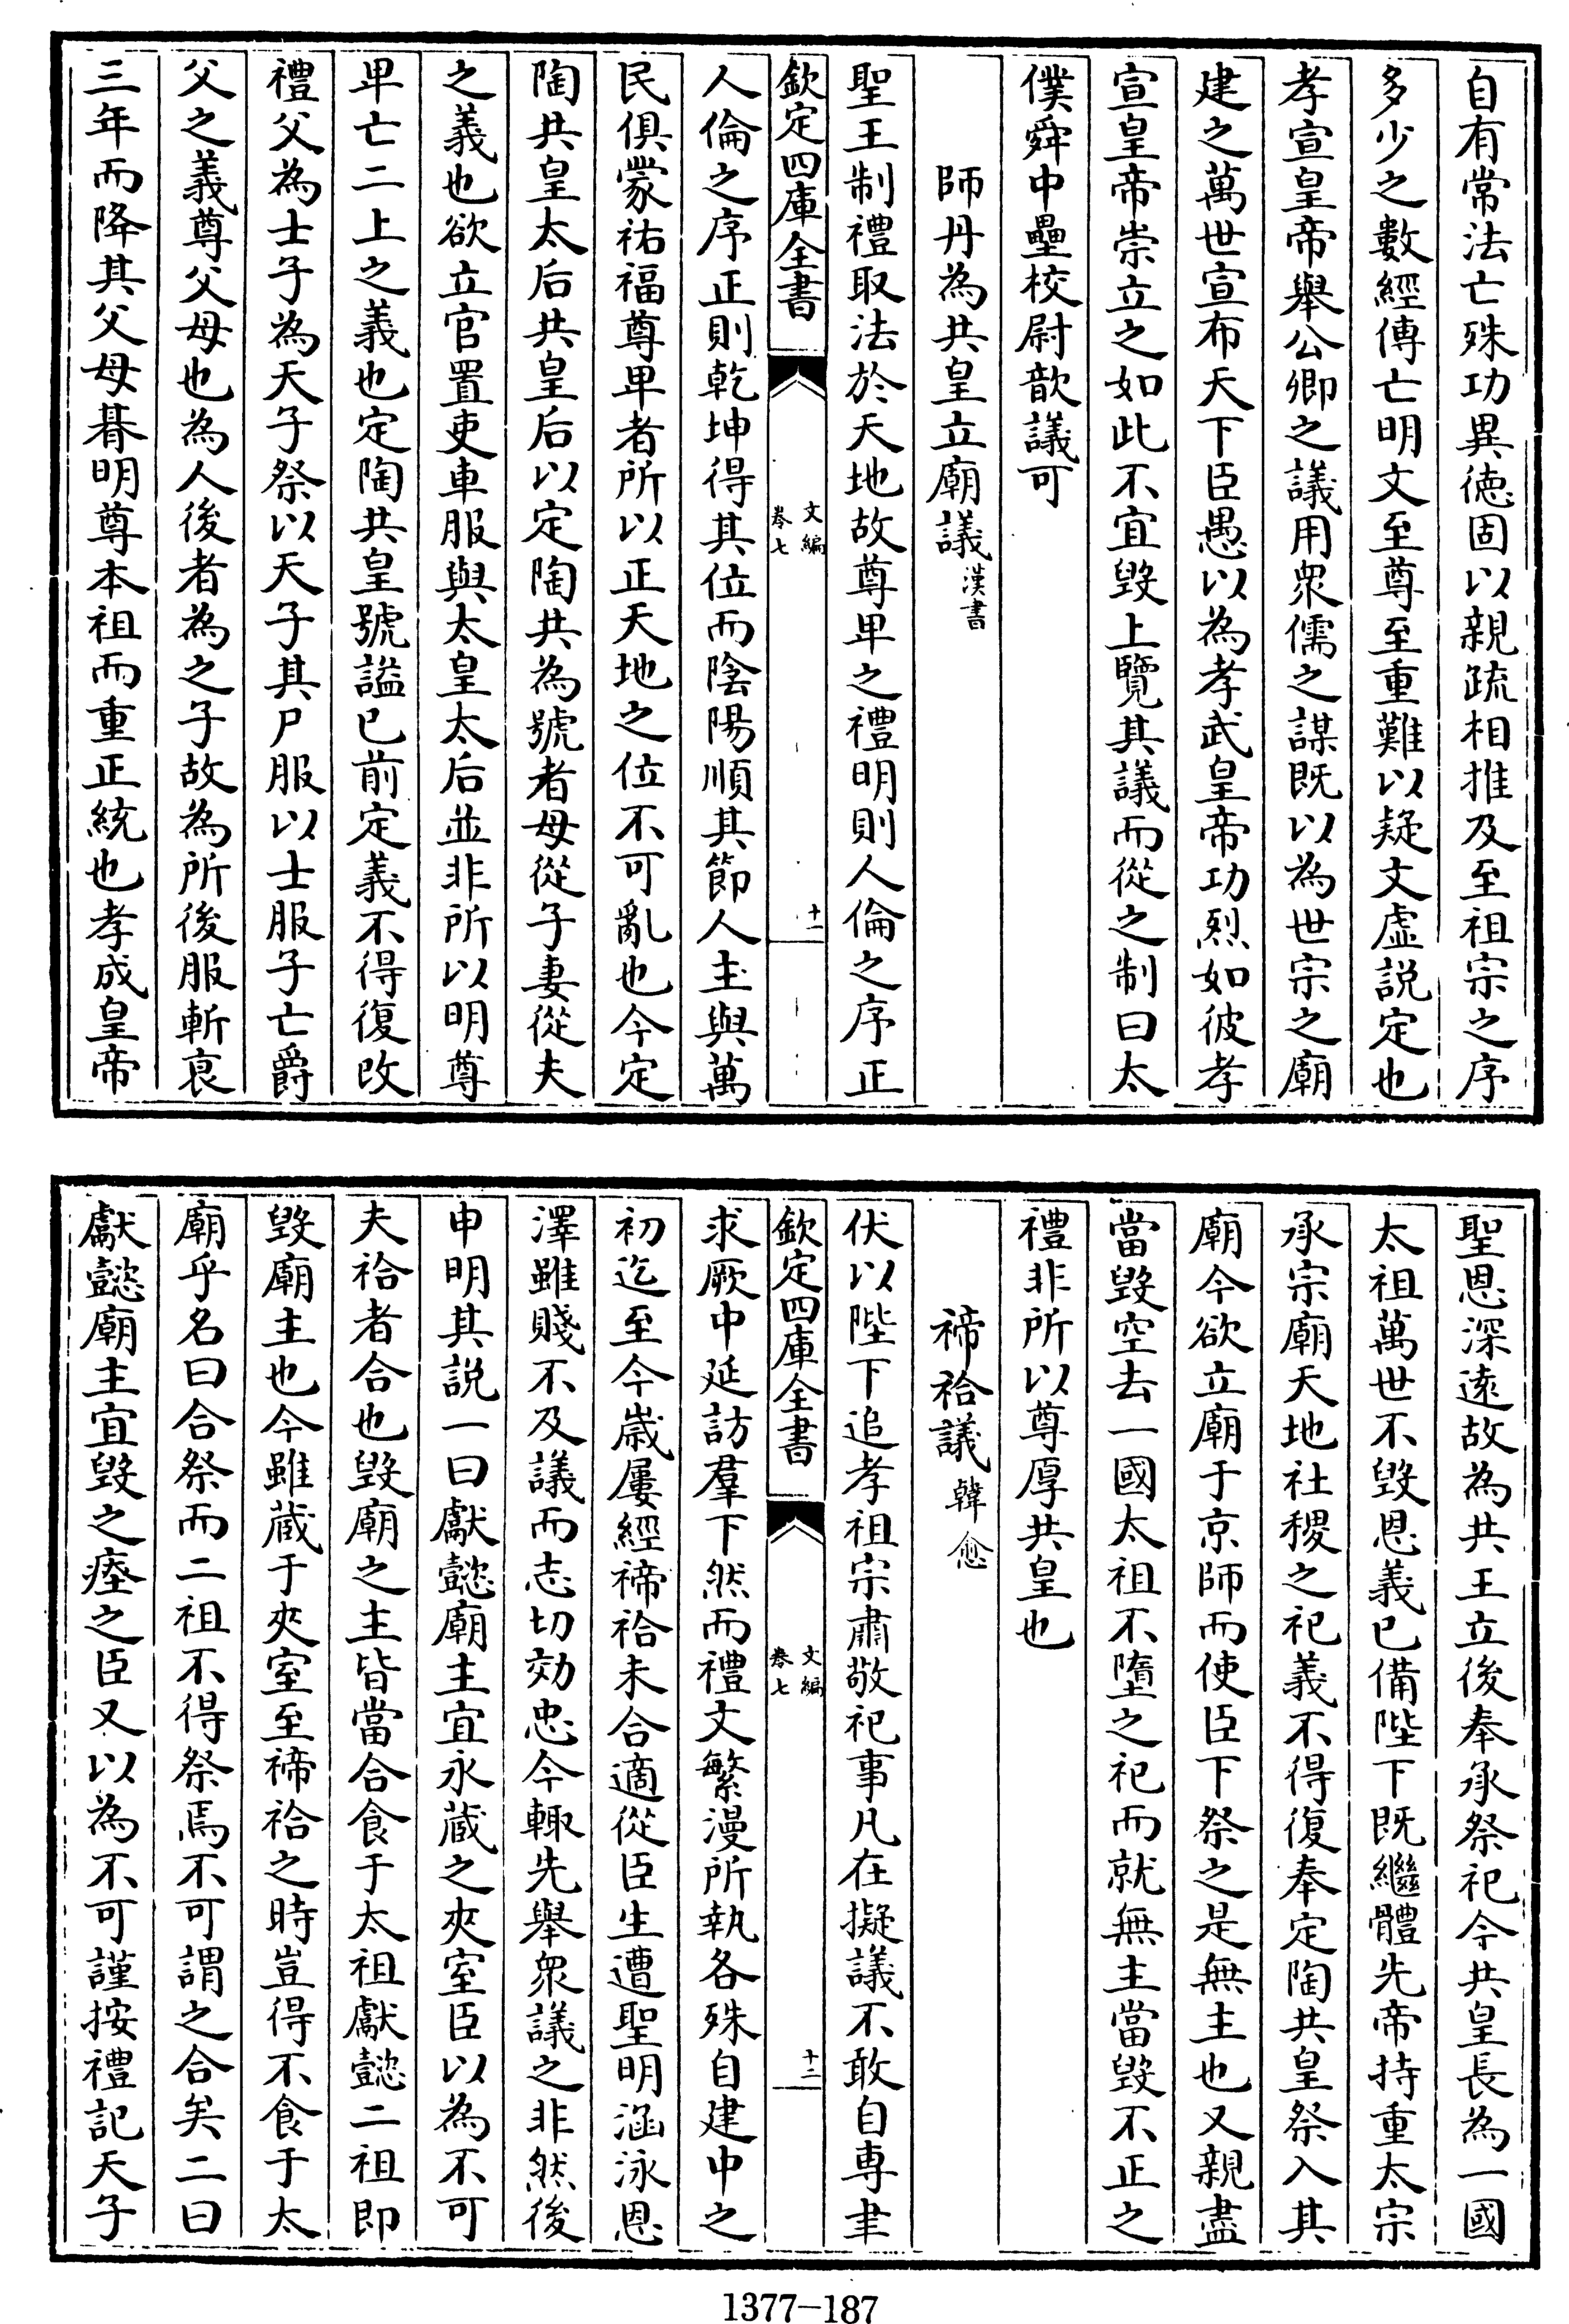 自有常法亡殊功異徳固以親疏相推及至祖宗之序
多少之數經傳亡明文至尊至重難以疑文虛説定也
孝宣皇帝舉公卿之議用衆儒之謀既以為世宗之廟
建之萬世宣布天下臣愚以為孝武皇帝功烈如彼孝
宣皇帝崇立之如此不宜毀上覽其議而從之制曰太
僕舜中壘校尉歆議可
師丹為共皇立廟議漢書
聖王制禮取法於天地故尊卑之禮明則人倫之序正
欽定四庫全書
文編
卷七
十一
人倫之序正則乾坤得其位而陰陽順其節人主與萬
民俱蒙祐福尊卑者所以正天地之位不可亂也今定
陶共皇太后共皇后以定陶共為號者母從子妻從夫
之義也欲立官置吏車服與太皇太后並非所以明尊
卑亡二上之義也定陶共皇號謚已前定義不得復改
禮父為士子為天子祭以天子其尸服以士服子亡爵
父之義尊父母也為人後者為之子故為所後服斬衰
三年而降其父母朞明尊本祖而重正統也孝成皇帝
聖恩深遠故為共王立後奉承祭祀今共皇長為一國
太祖萬世不毀恩義已備陛下既繼體先帝持重太宗
承宗廟天地社稷之祀義不得復奉定陶共皇祭入其
廟今欲立廟于京師而使臣下祭之是無主也又親盡
當毀空去一國太祖不墮之祀而就無主當毀不正之
禮非所以尊厚共皇也
禘祫議韓愈
伏以陛下追孝祖宗肅敬祀事凡在擬議不敢自專聿
欽定四庫全書
文編
卷七
十二
求厥中延訪羣下然而禮文繁漫所執各殊自建中之
初迄至今歳屢經禘祫未合適從臣生遭聖明涵泳恩
澤雖賤不及議而志切効忠今輙先舉衆議之非然後
申明其説一曰獻懿廟主宜永蔵之夾室臣以為不可
夫祫者合也毀廟之主皆當合食于太祖獻懿二祖即
毀廟主也今雖蔵于夾室至禘祫之時豈得不食于太
廟乎名曰合祭而二祖不得祭焉不可謂之合矣二曰
獻懿廟主宜毀之瘞之臣又以為不可謹按禮記天子
1377—187